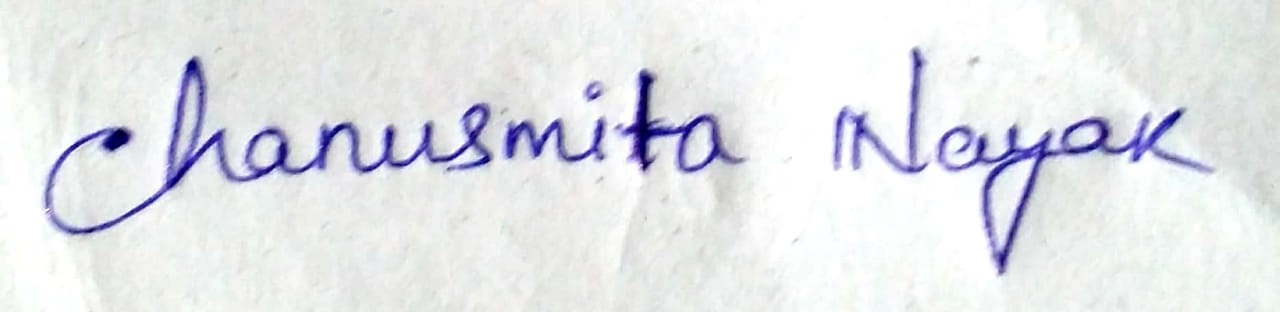 Chanusmita Nayak